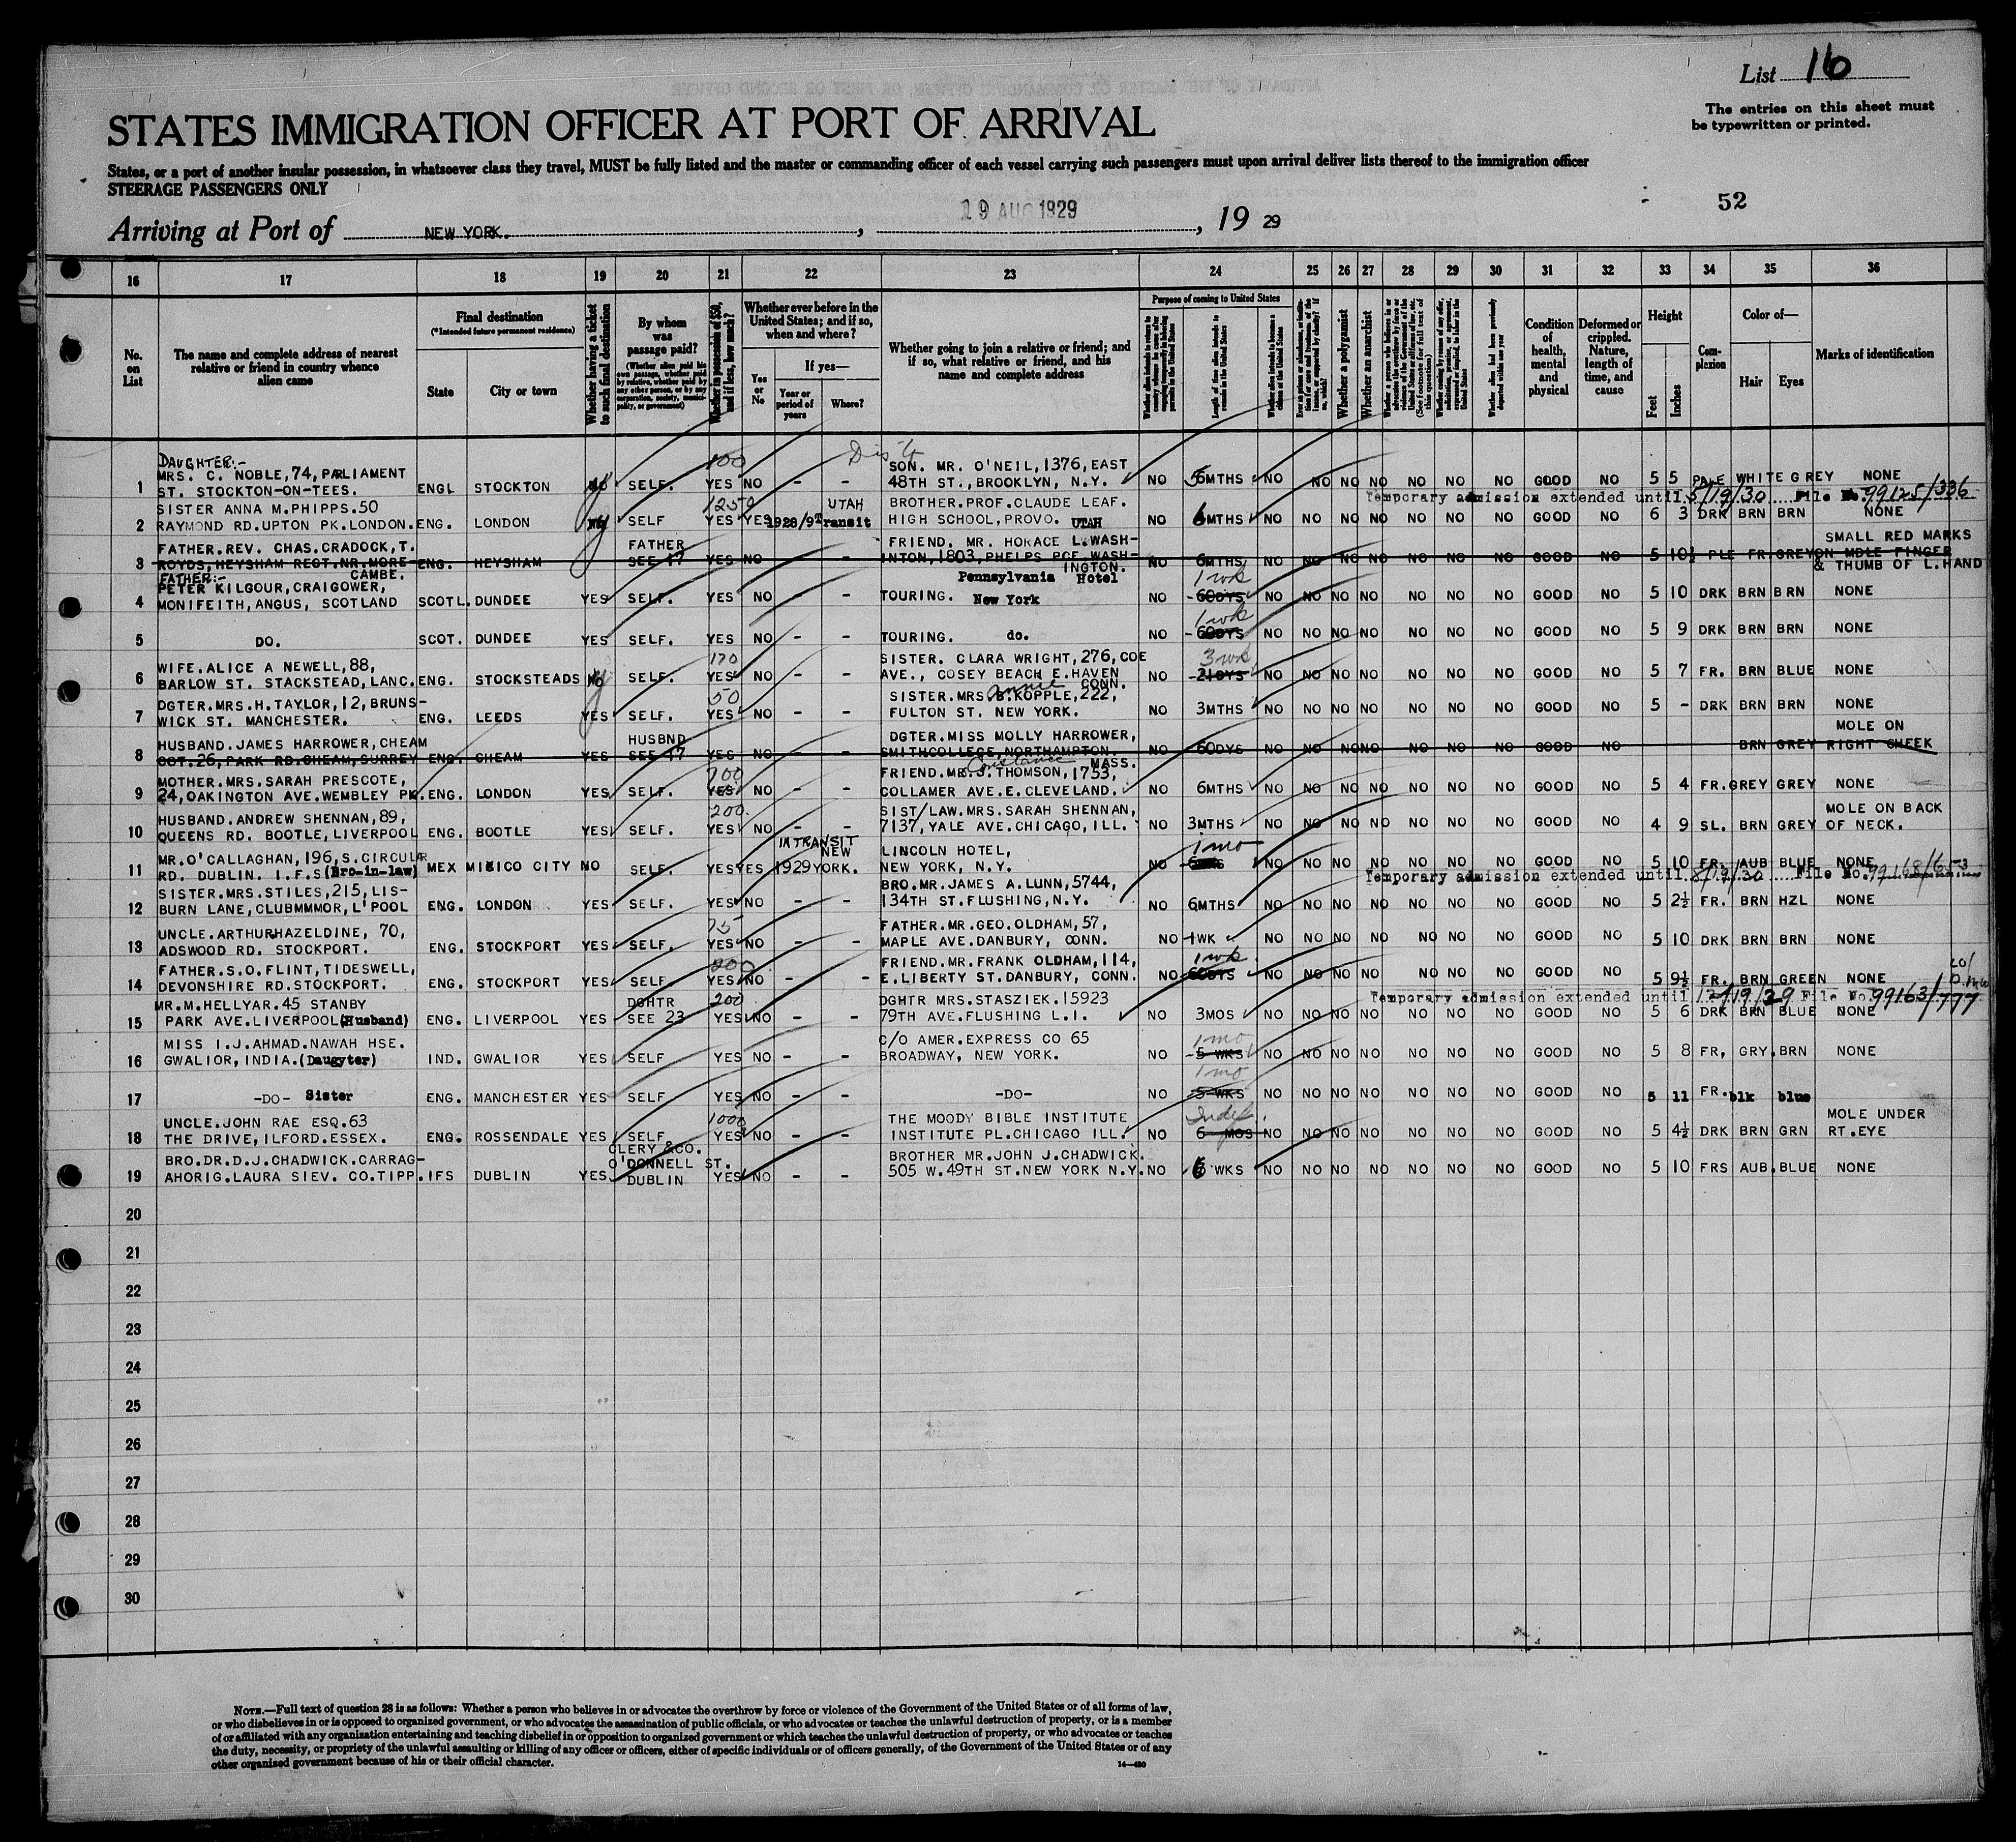 List 16
The entries on this sheet must
be typewritten or printed.
STATES IMMIGRATION OFFICER AT PORT OF ARRIVAL
States, or a port of another insular possession, in whatsoever class they travel, MUST be fully listed and the master or commanding officer of each vessel carrying such passengers must upon arrival deliver lists thereof to the immigration officer
STEERAGE PASSENGERS ONLY
52
Arriving at Port of NEW YORK. , 19 AUG 1929 , 19 29
16 17 18 19 20 21 22 23 24 25 26 27 28 29 30 31 32 33 34 35 36
No. on List
The name and complete address of nearest relative or friend in country whence alien came
Final destination
(*Intended future permanent residence)
State
City or town
Whether having a ticket to such final destination
By whom was passage paid?
(Whether alien paid his own passage, whether paid by relative, whether paid by any other person, or by any corporation, society, municipality, or government)
Whether in possession of $50, and if less, how much?
Whether ever before in the United States; and if so, when and where?
Yes or No
If yes—
Year or period of years
Where?
Whether going to join a relative or friend; and if so, what relative or friend, and his name and complete address
Purpose of coming to United States
Length of time alien intends to remain in the United States
Whether a polygamist
Whether an anarchist
Condition of health, mental and physical
Deformed or crippled. Nature, length of time, and cause
Height
Feet
Inches
Complexion
Color of—
Hair
Eyes
Marks of identification
DAUGHTER:- 100
MRS. C. NOBLE, 74, PARLIAMENT SON. MR. O'NEIL, 1376, EAST
1 ST. STOCKTON-ON-TEES. ENGL STOCKTON SELF. YES NO - - 48TH ST., BROOKLYN, N.Y. NO 6MTHS NO NO NO NO NO NO NO GOOD NO 5 5 PALE WHITE GREY NONE
Temporary admission extended until 5/19/30 File No. 99125/336
SISTER ANNA M.PHIPPS.50 1250 UTAH BROTHER.PROF.CLAUDE LEAF.
2 RAYMOND RD.UPTON PK.LONDON. ENG. LONDON SELF YES YES 1928/9 Transit HIGH SCHOOL, PROVO. UTAH NO 6MTHS NO NO NO NO NO NO NO GOOD NO 6 3 DRK BRN BRN NONE
FATHER.REV. CHAS.CRADOCK, T. FATHER FRIEND. MR. HORACE L.WASH- SMALL RED MARKS
3 ROYDS, HEYSHAM RECT.NR.MORE- ENG. HEYSHAM SEE 17 YES NO - INTON, 1803, PHELPS PCE.WASH- NO 6MTHS NO NO NO NO NO NO NO GOOD NO 5 10½ PLE FR GREY ON MDLE FINGER
CAMBE. INGTON. & THUMB OF L.HAND
FATHER:-
PETER KILGOUR, CRAIGOWER, Pennsylvania Hotel 1 wk
4 MONIFEITH, ANGUS, SCOTLAND SCOTL. DUNDEE YES SELF. YES NO - - TOURING. New York NO 60DYS NO NO NO NO NO NO NO GOOD NO 5 10 DRK BRN BRN NONE
1 wk
5 DO. SCOT. DUNDEE YES SELF. YES NO - - TOURING. do. NO 60DYS NO NO NO NO NO NO NO GOOD NO 5 9 DRK BRN BRN NONE
WIFE.ALICE A NEWELL, 88, 170 SISTER. CLARA WRIGHT, 276, COE 3 wk
6 BARLOW ST. STACKSTEAD, LANC. ENG. STOCKSTEADS NO SELF. YES NO - - AVE., COSEY BEACH E.HAVEN CONN. NO 21DYS NO NO NO NO NO NO NO GOOD NO 5 7 FR. BRN BLUE NONE
DGTER.MRS.H.TAYLOR, 12, BRUNS- 50 SISTER.MRS. Annie KOPPLE, 222,
7 WICK ST. MANCHESTER. ENG. LEEDS YES SELF. YES NO - - FULTON ST. NEW YORK. NO 3MTHS NO NO NO NO NO NO NO GOOD NO 5 - DRK BRN BRN NONE
HUSBAND.JAMES HARROWER, CHEAM HUSBND DGTER.MISS MOLLY HARROWER, MOLE ON
8 COT.26, PARK RD.CHEAM, SURREY ENG. CHEAM YES SEE 17 YES NO - - SMITHCOLLEGE, NORTHAMPTON. MASS. NO 60DYS NO NO NO NO NO NO NO GOOD NO BRN GREY RIGHT CHEEK
MOTHER.MRS.SARAH PRESCOTE, 700 FRIEND.MR.J. Constance THOMSON, 1753,
9 24, OAKINGTON AVE.WEMBLEY PK. ENG. LONDON YES SELF. YES NO - - COLLAMER AVE.E.CLEVELAND. NO 6MTHS NO NO NO NO NO NO NO GOOD NO 5 4 FR. GREY GREY NONE
HUSBAND.ANDREW SHENNAN, 89, 200. SIST/LAW.MRS.SARAH SHENNAN, MOLE ON BACK
10 QUEENS RD. BOOTLE, LIVERPOOL ENG. BOOTLE YES SELF. YES NO - - 7137, YALE AVE.CHICAGO, ILL. NO 3MTHS NO NO NO NO NO NO NO GOOD NO 4 9 SL. BRN GREY OF NECK.
MR.O'CALLAGHAN, 196, S.CIRCULAR IN TRANSIT NEW LINCOLN HOTEL, 1 mo
11 RD. DUBLIN. I.F.S (Bro-in-law) MEX MEXICO CITY NO SELF. YES YES 1929 YORK. NEW YORK, N.Y. NO NO NO NO NO NO NO NO GOOD NO 5 10 FR. AUB BLUE NONE
Temporary admission extended until 8/19/30 File No. 99168/653
SISTER.MRS.STILES, 215, LIS- BRO.MR.JAMES A.LUNN, 5744,
12 BURN LANE, CLUBMMMOR, L'POOL ENG. LONDON YES SELF. YES NO - - 134TH ST.FLUSHING, N.Y. NO 6MTHS NO NO NO NO NO NO NO GOOD NO 5 2½ FR. BRN HZL NONE
UNCLE.ARTHURHAZELDINE, 70, 75 FATHER.MR.GEO.OLDHAM, 57,
13 ADSWOOD RD. STOCKPORT. ENG. STOCKPORT YES SELF. YES NO - - MAPLE AVE.DANBURY, CONN. NO 1WK NO NO NO NO NO NO NO GOOD NO 5 10 DRK BRN BRN NONE
FATHER.S.O.FLINT, TIDESWELL, 200 FRIEND.MR.FRANK OLDHAM, 114, 1 wk.
14 DEVONSHIRE RD.STOCKPORT. ENG. STOCKPORT YES SELF. YES NO - - E.LIBERTY ST.DANBURY, CONN. NO 60DYS NO NO NO NO NO NO NO GOOD NO 5 9½ FR. BRN GREEN NONE
Temporary admission extended until 12/19/29 File No. 99163/777
MR.M.HELLYAR.45 STANBY DGHTR 200 DGHTR MRS.STASZIEK.15923
15 PARK AVE.LIVERPOOL (Husband) ENG. LIVERPOOL YES SEE 23 YES NO - - 79TH AVE.FLUSHING L.I. NO 3MOS NO NO NO NO NO NO NO GOOD NO 5 6 DRK BRN BLUE NONE
MISS I.J.AHMAD.NAWAH HSE. C/O AMER.EXPRESS CO 65 1 mo
16 GWALIOR, INDIA. (Daugyter) IND. GWALIOR YES SELF YES NO - - BROADWAY, NEW YORK. NO 5 WKS NO NO NO NO NO NO NO GOOD NO 5 8 FR, GRY. BRN NONE
1 mo
17 -DO- Sister ENG. MANCHESTER YES SELF YES NO - - -DO- NO 5 WKS NO NO NO NO NO NO NO GOOD NO 5 11 FR. blk blue
UNCLE.JOHN RAE ESQ.63 1000 THE MOODY BIBLE INSTITUTE Indef. MOLE UNDER
18 THE DRIVE, ILFORD.ESSEX. ENG. ROSSENDALE YES SELF YES NO - - INSTITUTE PL.CHICAGO ILL. NO 6 MOS NO NO NO NO NO NO NO GOOD NO 5 4½ DRK BRN GRN RT.EYE
BRO.DR.D.J.CHADWICK.CARRAG- CLERY &CO. O'DONNELL ST. BROTHER MR.JOHN J.CHADWICK.
19 AHORIG.LAURA SIEV. CO.TIPP. IFS DUBLIN YES DUBLIN YES NO - - 505 W.49TH ST.NEW YORK N.Y. NO 6 WKS NO NO NO NO NO NO NO GOOD NO 5 10 FRS AUB. BLUE NONE
20
21
22
23
24
25
26
27
28
29
30
NOTE.—Full text of question 28 is as follows: Whether a person who believes in or advocates the overthrow by force or violence of the Government of the United States or of all forms of law,
or who disbelieves in or is opposed to organized government, or who advocates the assassination of public officials, or who advocates or teaches the unlawful destruction of property, or is a member
of or affiliated with any organisation entertaining and teaching disbelief in or opposition to organized government or which teaches the unlawful destruction of property, or who advocates or teaches
the duty, necessity, or propriety of the unlawful assaulting or killing of any officer or officers, either of specific individuals or of officers generally, of the Government of the United States or of any
other organised government because of his or their official character.
14—480